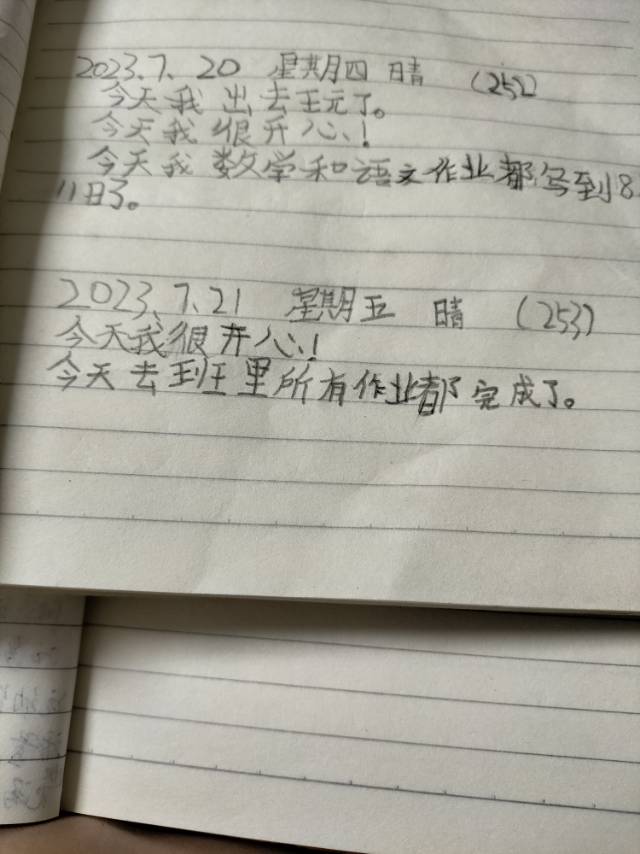 2023.7.20 星期四 晴 (252)
今天我出去王元了。
今天我很开心!
今天我数学和语文作业都写到8.
11日了。
2023.7.21 星期五 晴 (253)
今天我很开心!
今天去班里所有作业都完成了。